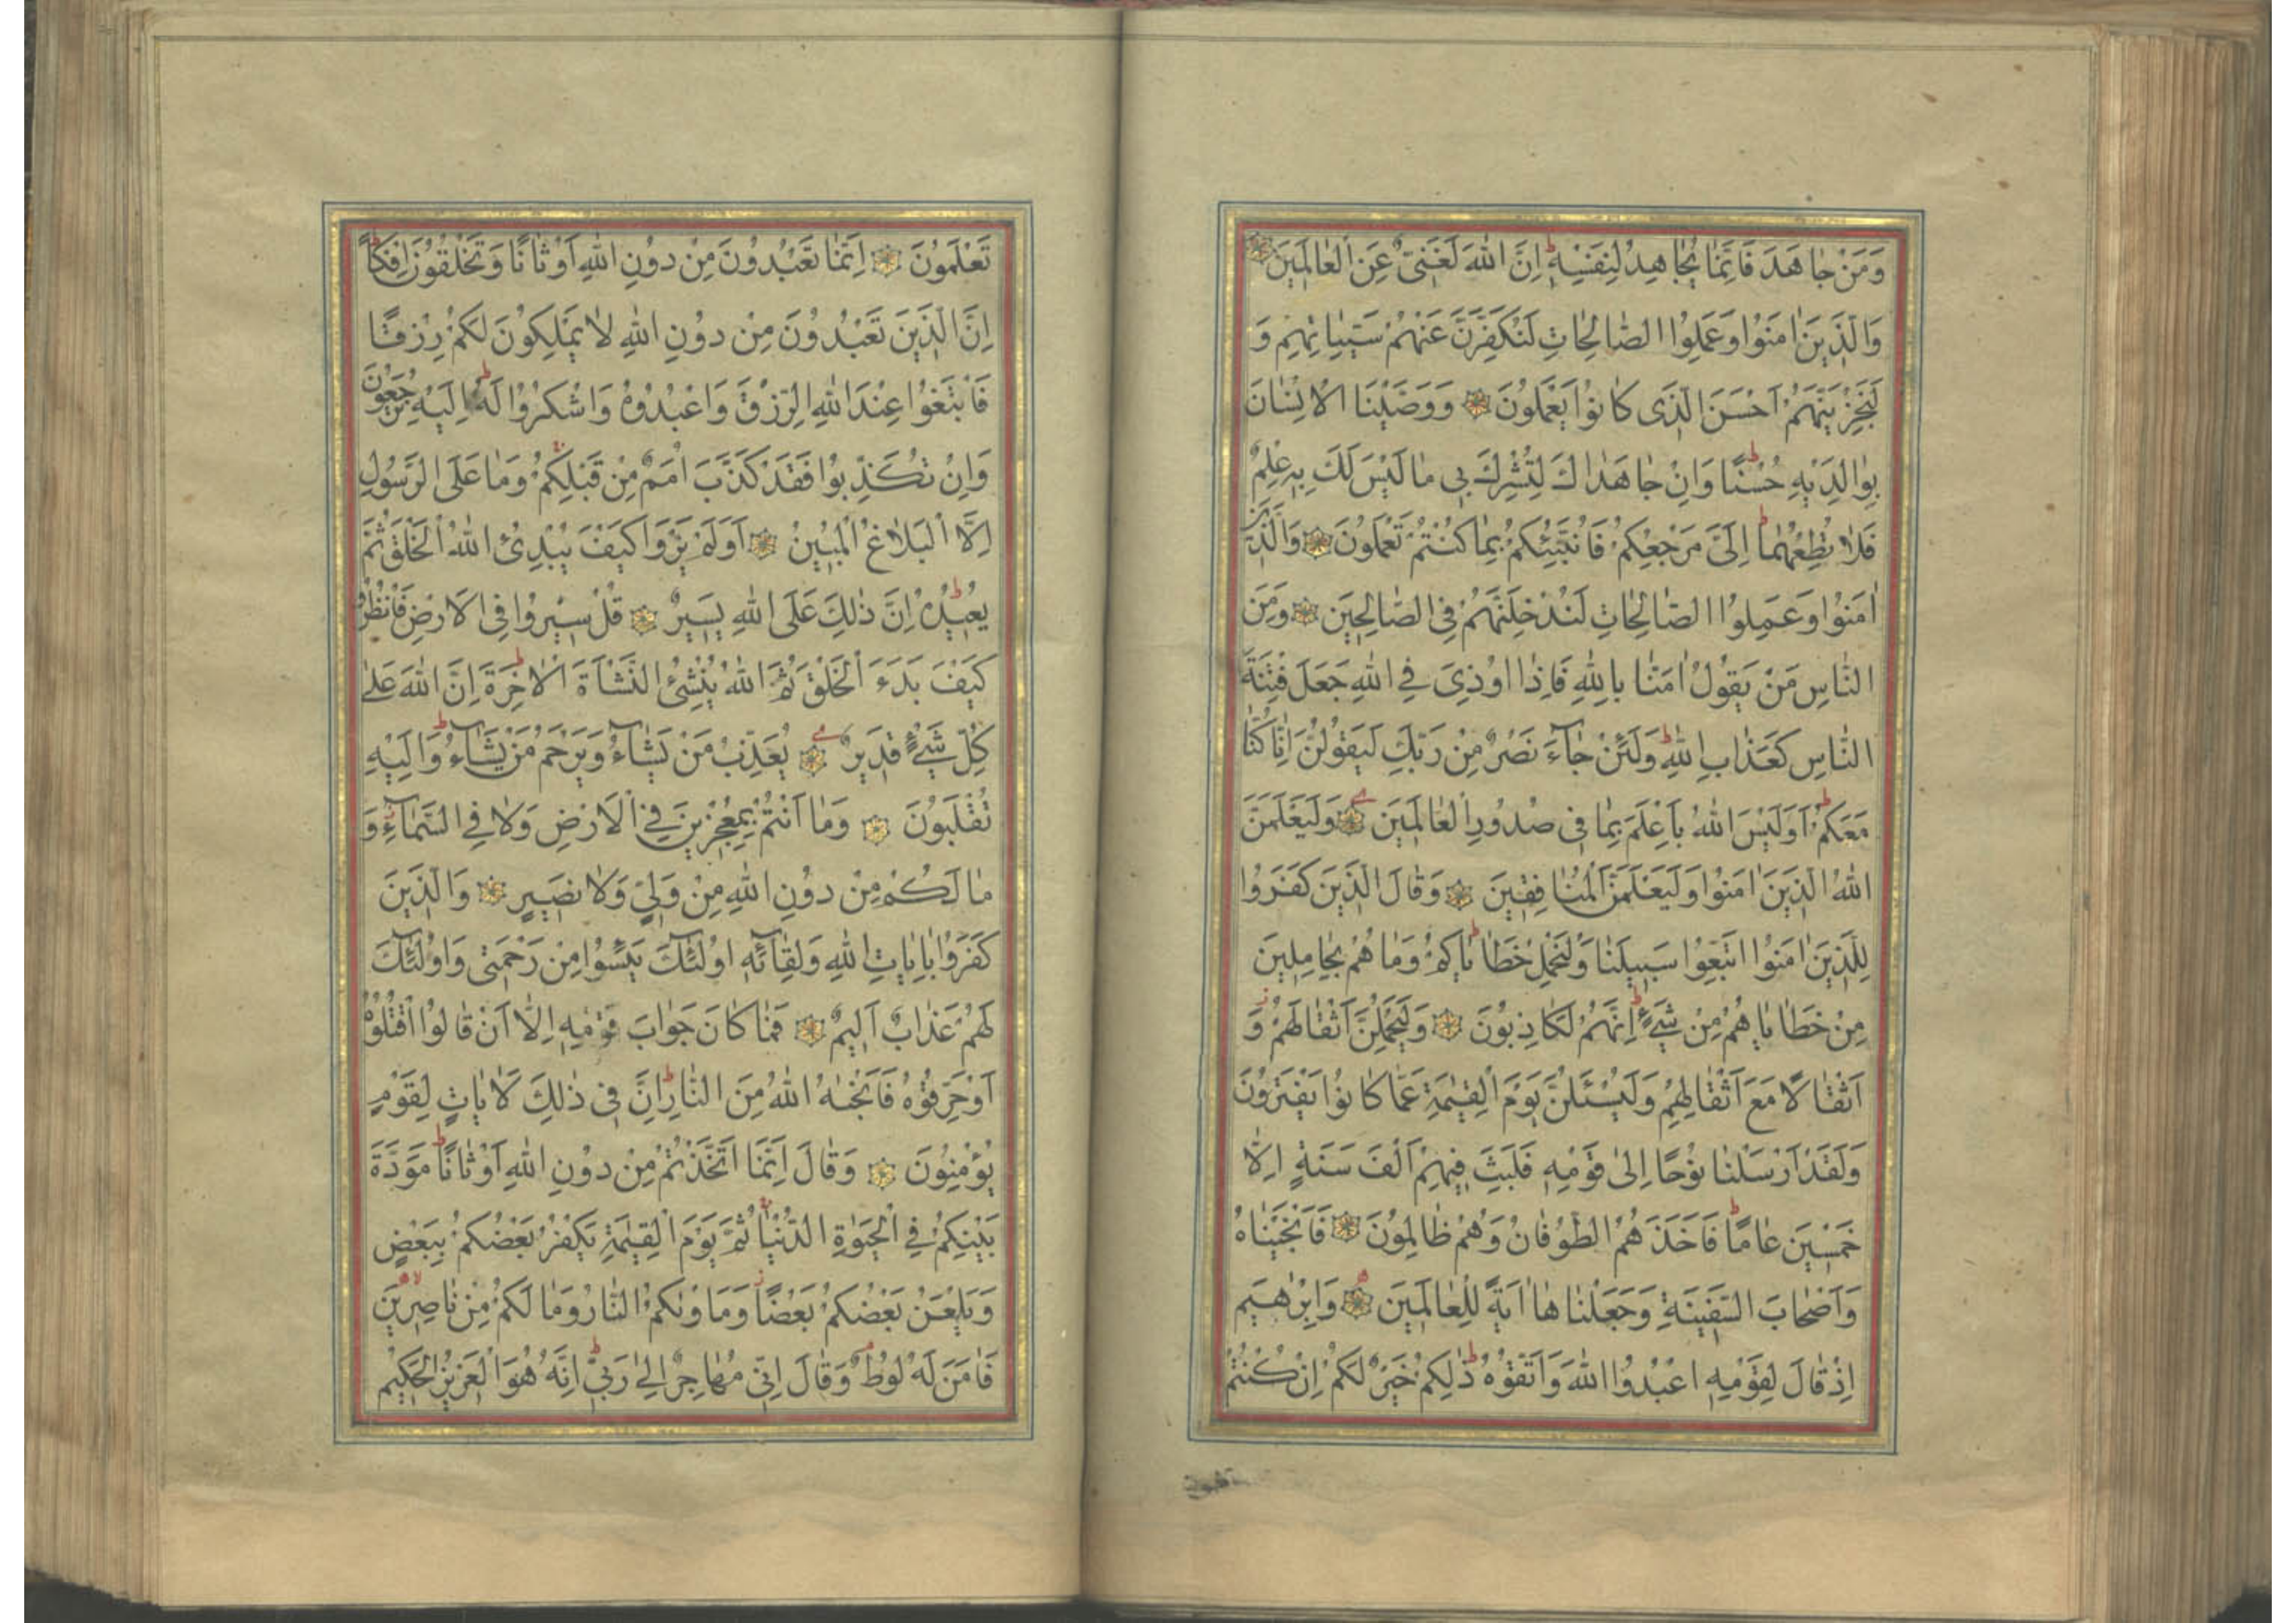 وَمَنْ جَاهَدَ فَاِنَّمَا يُجَاهِدُ لِنَفْسِهِ اِنَّ اللّٰهَ لَغَنِيٌّ عَنِ الْعَالَمِينَ
وَالَّذِينَ اٰمَنُوا وَعَمِلُوا الصَّالِحَاتِ لَنُكَفِّرَنَّ عَنْهُمْ سَيِّئَاتِهِمْ وَ
لَنَجْزِيَنَّهُمْ اَحْسَنَ الَّذِى كَانُوا يَعْمَلُونَ وَوَصَّيْنَا الْاِنْسَانَ
بِوَالِدَيْهِ حُسْنًا وَاِنْ جَاهَدَاكَ لِتُشْرِكَ بِى مَا لَيْسَ لَكَ بِهِ عِلْمٌ
فَلَا تُطِعْهُمَا اِلَىَّ مَرْجِعُكُمْ فَاُنَبِّئُكُمْ بِمَا كُنْتُمْ تَعْمَلُونَ وَالَّذِينَ
اٰمَنُوا وَعَمِلُوا الصَّالِحَاتِ لَنُدْخِلَنَّهُمْ فِى الصَّالِحِينَ وَمِنَ
النَّاسِ مَنْ يَقُولُ اٰمَنَّا بِاللّٰهِ فَاِذَا اُوذِىَ فِى اللّٰهِ جَعَلَ فِتْنَةَ
النَّاسِ كَعَذَابِ اللّٰهِ وَلَئِنْ جَاۤءَ نَصْرٌ مِنْ رَبِّكَ لَيَقُولُنَّ اِنَّا كُنَّا
مَعَكُمْ اَوَلَيْسَ اللّٰهُ بِاَعْلَمَ بِمَا فِى صُدُورِ الْعَالَمِينَ وَلَيَعْلَمَنَّ
اللّٰهُ الَّذِينَ اٰمَنُوا وَلَيَعْلَمَنَّ الْمُنَافِقِينَ وَقَالَ الَّذِينَ كَفَرُوا
لِلَّذِينَ اٰمَنُوا اتَّبِعُوا سَبِيلَنَا وَلْنَحْمِلْ خَطَايَاكُمْ وَمَا هُمْ بِحَامِلِينَ
مِنْ خَطَايَاهُمْ مِنْ شَىْءٍ اِنَّهُمْ لَكَاذِبُونَ وَلَيَحْمِلُنَّ اَثْقَالَهُمْ وَ
اَثْقَالًا مَعَ اَثْقَالِهِمْ وَلَيُسْئَلُنَّ يَوْمَ الْقِيٰمَةِ عَمَّا كَانُوا يَفْتَرُونَ
وَلَقَدْ اَرْسَلْنَا نُوحًا اِلٰى قَوْمِهِ فَلَبِثَ فِيهِمْ اَلْفَ سَنَةٍ اِلَّا
خَمْسِينَ عَامًا فَاَخَذَهُمُ الطُّوفَانُ وَهُمْ ظَالِمُونَ فَاَنْجَيْنَاهُ
وَاَصْحَابَ السَّفِينَةِ وَجَعَلْنَاهَا اٰيَةً لِلْعَالَمِينَ وَاِبْرٰهِيمَ
اِذْ قَالَ لِقَوْمِهِ اعْبُدُوا اللّٰهَ وَاتَّقُوهُ ذٰلِكُمْ خَيْرٌ لَكُمْ اِنْ كُنْتُمْ
تَعْلَمُونَ اِنَّمَا تَعْبُدُونَ مِنْ دُونِ اللّٰهِ اَوْثَانًا وَتَخْلُقُونَ اِفْكًا
اِنَّ الَّذِينَ تَعْبُدُونَ مِنْ دُونِ اللّٰهِ لَا يَمْلِكُونَ لَكُمْ رِزْقًا
فَابْتَغُوا عِنْدَ اللّٰهِ الرِّزْقَ وَاعْبُدُوهُ وَاشْكُرُوا لَهُ اِلَيْهِ تُرْجَعُونَ
وَاِنْ تُكَذِّبُوا فَقَدْ كَذَّبَ اُمَمٌ مِنْ قَبْلِكُمْ وَمَا عَلَى الرَّسُولِ
اِلَّا الْبَلَاغُ الْمُبِينُ اَوَلَمْ يَرَوْا كَيْفَ يُبْدِئُ اللّٰهُ الْخَلْقَ ثُمَّ
يُعِيدُهُ اِنَّ ذٰلِكَ عَلَى اللّٰهِ يَسِيرٌ قُلْ سِيرُوا فِى الْاَرْضِ فَانْظُرُوا
كَيْفَ بَدَءَ الْخَلْقَ ثُمَّ اللّٰهُ يُنْشِئُ النَّشْاَةَ الْاٰخِرَةَ اِنَّ اللّٰهَ عَلٰى
كُلِّ شَىْءٍ قَدِيرٌ يُعَذِّبُ مَنْ يَشَاۤءُ وَيَرْحَمُ مَنْ يَشَاۤءُ وَاِلَيْهِ
تُقْلَبُونَ وَمَا اَنْتُمْ بِمُعْجِزِينَ فِى الْاَرْضِ وَلَا فِى السَّمَاۤءِ وَ
مَا لَكُمْ مِنْ دُونِ اللّٰهِ مِنْ وَلِىٍّ وَلَا نَصِيرٍ وَالَّذِينَ
كَفَرُوا بِاٰيَاتِ اللّٰهِ وَلِقَاۤئِهِ اُولٰۤئِكَ يَئِسُوا مِنْ رَحْمَتِى وَاُولٰۤئِكَ
لَهُمْ عَذَابٌ اَلِيمٌ فَمَا كَانَ جَوَابَ قَوْمِهِ اِلَّا اَنْ قَالُوا اقْتُلُوهُ
اَوْ حَرِّقُوهُ فَاَنْجٰيهُ اللّٰهُ مِنَ النَّارِ اِنَّ فِى ذٰلِكَ لَاٰيَاتٍ لِقَوْمٍ
يُؤْمِنُونَ وَقَالَ اِنَّمَا اتَّخَذْتُمْ مِنْ دُونِ اللّٰهِ اَوْثَانًا مَوَدَّةَ
بَيْنِكُمْ فِى الْحَيٰوةِ الدُّنْيَا ثُمَّ يَوْمَ الْقِيٰمَةِ يَكْفُرُ بَعْضُكُمْ بِبَعْضٍ
وَيَلْعَنُ بَعْضُكُمْ بَعْضًا وَمَاْوٰيكُمُ النَّارُ وَمَا لَكُمْ مِنْ نَاصِرِينَ
فَاٰمَنَ لَهُ لُوطٌ وَقَالَ اِنِّى مُهَاجِرٌ اِلٰى رَبِّى اِنَّهُ هُوَ الْعَزِيزُ الْحَكِيمُ